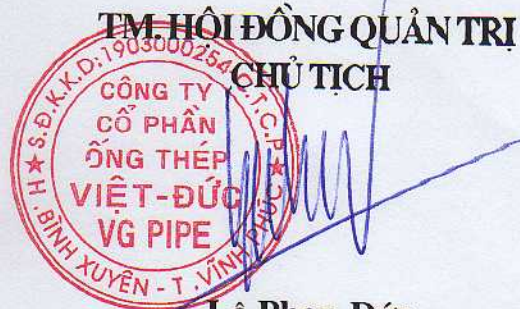 TM. HỘI ĐỒNG QUẢN TRỊ
CHỦ TỊCH
S.Đ.K.K.D:1903000254-C.T.C.P
CÔNG TY
CỔ PHẦN
ỐNG THÉP
VIỆT-ĐỨC
VG PIPE
H.BÌNH XUYÊN - T.VĨNH PHÚC